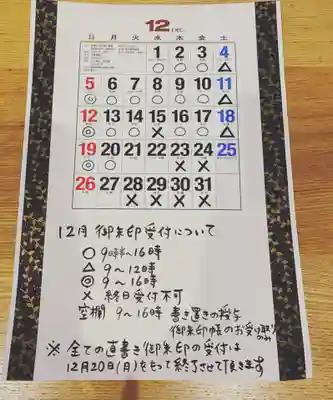 12 DEC.
日 月 火 水 木 金 土
1 2 3 4
○ ○ ○ △
5 6 7 8 9 10 11
◎ ○ ○ ○ ○ ○ △
12 13 14 15 16 17 18
◎ ○ ○ × ○ ○ △
19 20 21 22 23 24 25
◎ ○ × ×
26 27 28 29 30 31
× × × ×
12月 御朱印受付について
○ 9時半〜16時
△ 9〜12時
◎ 9〜16時
× 終日受付不可
空欄 9〜16時 書き置きの授与
御朱印帳のお受け取りのみ
※ 全ての直書き御朱印の受付は
12月20日(月)をもって終了させて頂きます